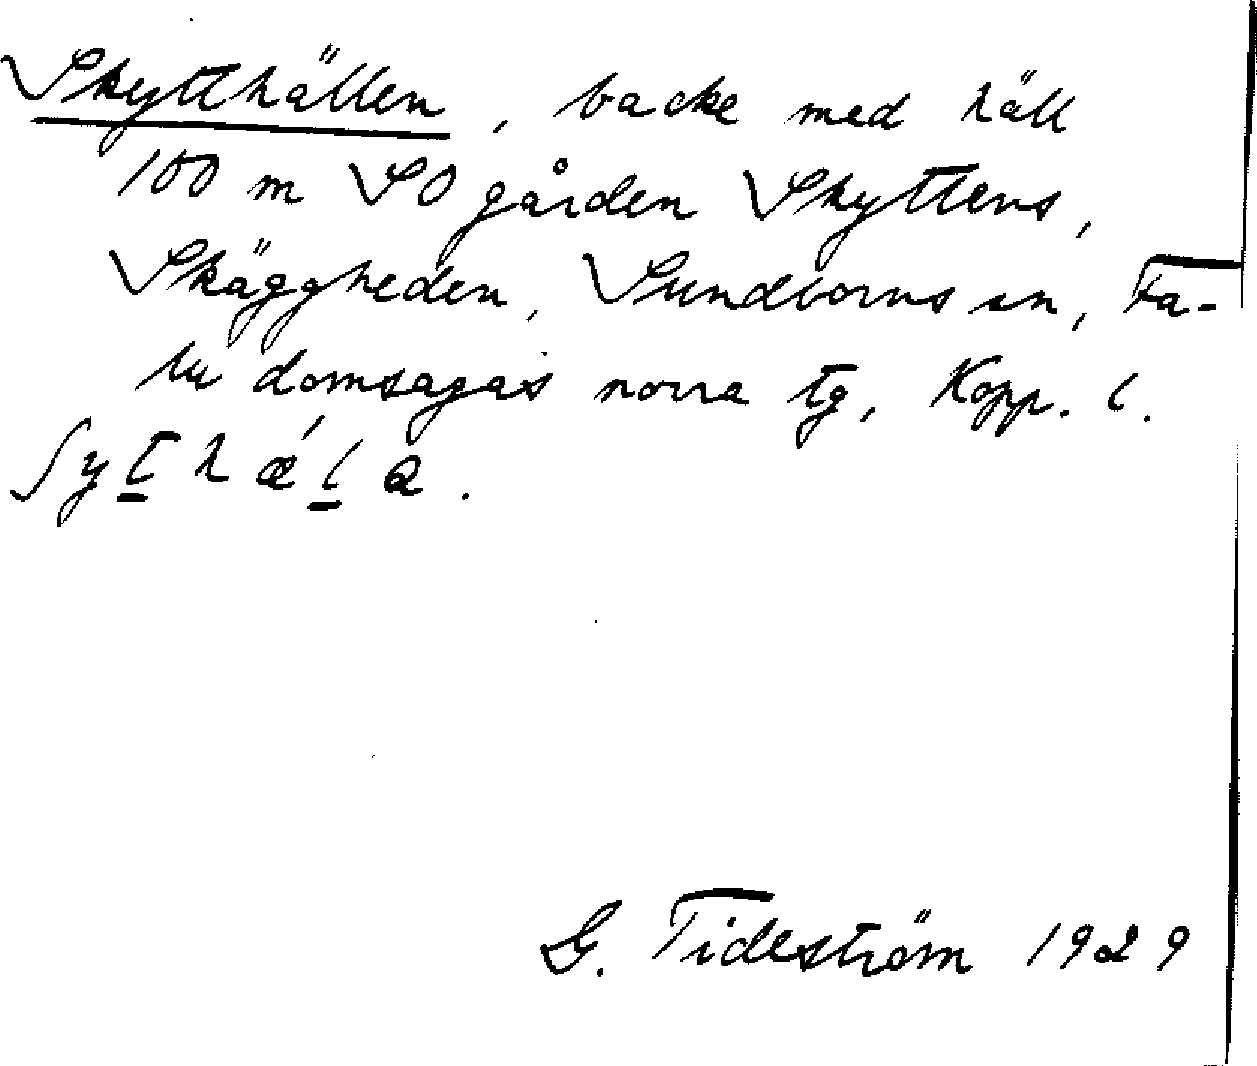 Skytthällen, backe med häll
100 m SO gården Skyttens,
Skäggheden, Sundborns sn, Fa-
lu domsagas norra tg, Kopp. l.
ʃyt̲hǽl̲a.
G. Tideström 1929